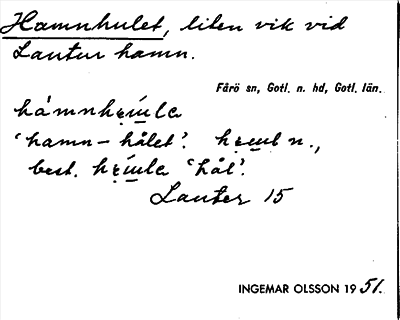 Hamnhulet, liten vik vid
Lautur hamn.
Fårö sn, Gotl. n. hd, Gotl. län.
'hamn-hålet'.
best. 'hål'.
Lauter 15
INGEMAR OLSSON 19 51.